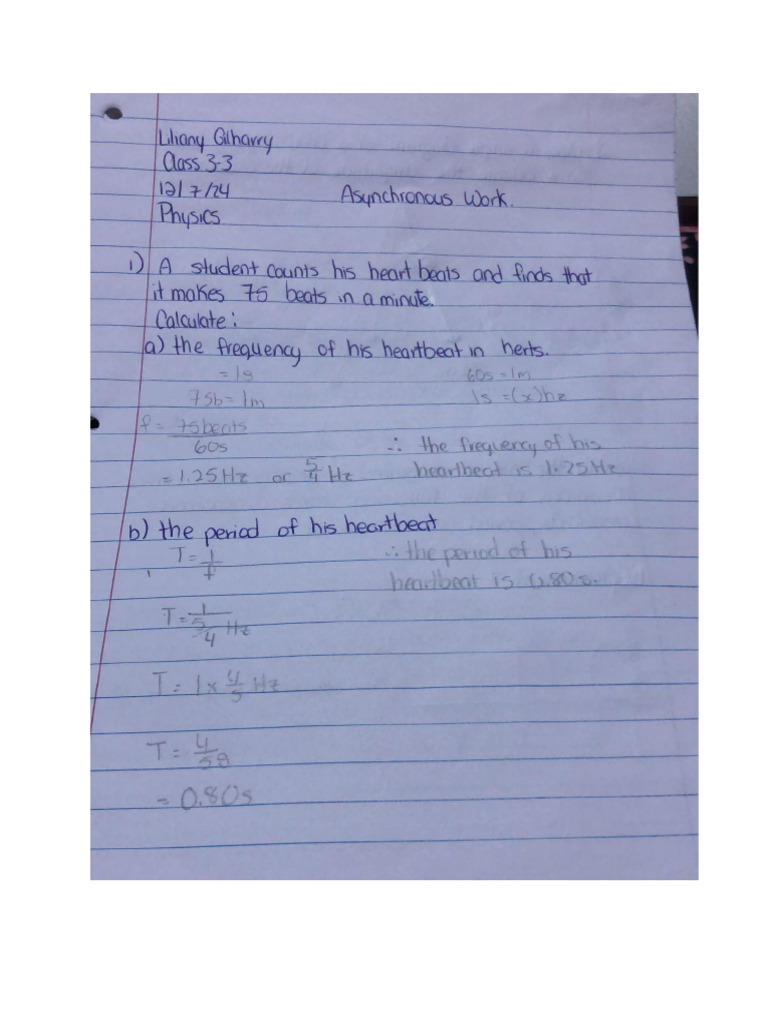 Liliany Gilharry
Class 3-3
12/7/24 Asynchronous Work.
Physics
1) A student counts his heart beats and finds that
it makes 75 beats in a minute.
Calculate:
a) the frequency of his heartbeat in herts.
= 1s 60s = 1m
75b = 1m 1s = (x)hz
f = 75beats
60s ∴ the frequency of his
= 1.25Hz or 5/4 Hz heartbeat is 1.25Hz
b) the period of his heartbeat
T = 1/f ∴ the period of his
heartbeat is 0.80s.
T = 1/(5/4) Hz
T = 1 x 4/5 Hz
T = 4/5s
= 0.80s